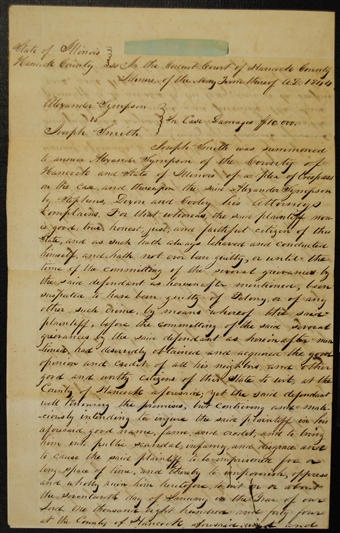 State of Illinois
Hancock County } ss In the Circuit Court of Hancock County
of the May Term thereof A.D. 1844
Alexander Sympson
vs
Joseph Smith } In Case Damages $10,000.
Joseph Smith was summoned
to answer Alexander Sympson of the County of
Hancock and State of Illinois of a plea of trespass
on the case, and thereupon the said Alexander Sympson
by Stephens, and his Attorneys
Complains. For that whereas, the said plaintiff now
is good, true, honest, just, and faithful citizen of this
State, and as such hath always behaved and conducted
himself, and hath not ever been guilty, or until the
time of the committing of the several grievances by
the said defendant as hereinafter mentioned, been
suspected to have been guilty of Felony, or of any
other such crime, by means whereof the said
plaintiff, before the committing of the said several
grievances by the said defendant as hereinafter men-
tioned, had deservedly obtained and acquired the good
opinion and credit of all his neighbors, and other
good and worthy citizens of this State to wit, at the
County of Hancock aforesaid, yet the said defendant
well knowing the premises, but contriving and mali-
ciously intending to injure the said plaintiff in his
aforesaid good name, fame, and credit, and to bring
him into public scandal, infamy, and disgrace and
to cause the said plaintiff to be imprisoned for a
long space of time, and thereby to impoverish, oppress
and wholly ruin him heretofore, to wit on or about
the seventeenth day of January in the Year of our
Lord one thousand eight hundred and forty four
at the County of Hancock aforesaid, and